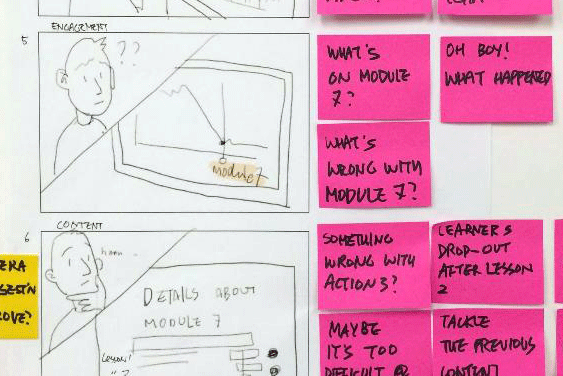 ENGAGEMENT
5
??
Module 7
WHAT'S
ON MODULE
7?
OH BOY!
WHAT HAPPENED
WHAT'S
WRONG WITH
MODULE 7?
CONTENT
6
hmm..
DETAILS ABOUT
MODULE 7
Lesson1
SOMETHING
WRONG WITH
ACTION 3?
LEARNERS
DROP-OUT
AFTER LESSON
2
MAYBE
IT'S TOO
DIFFICULT @
TACKLE
THE PREVIOUS
CONTENT